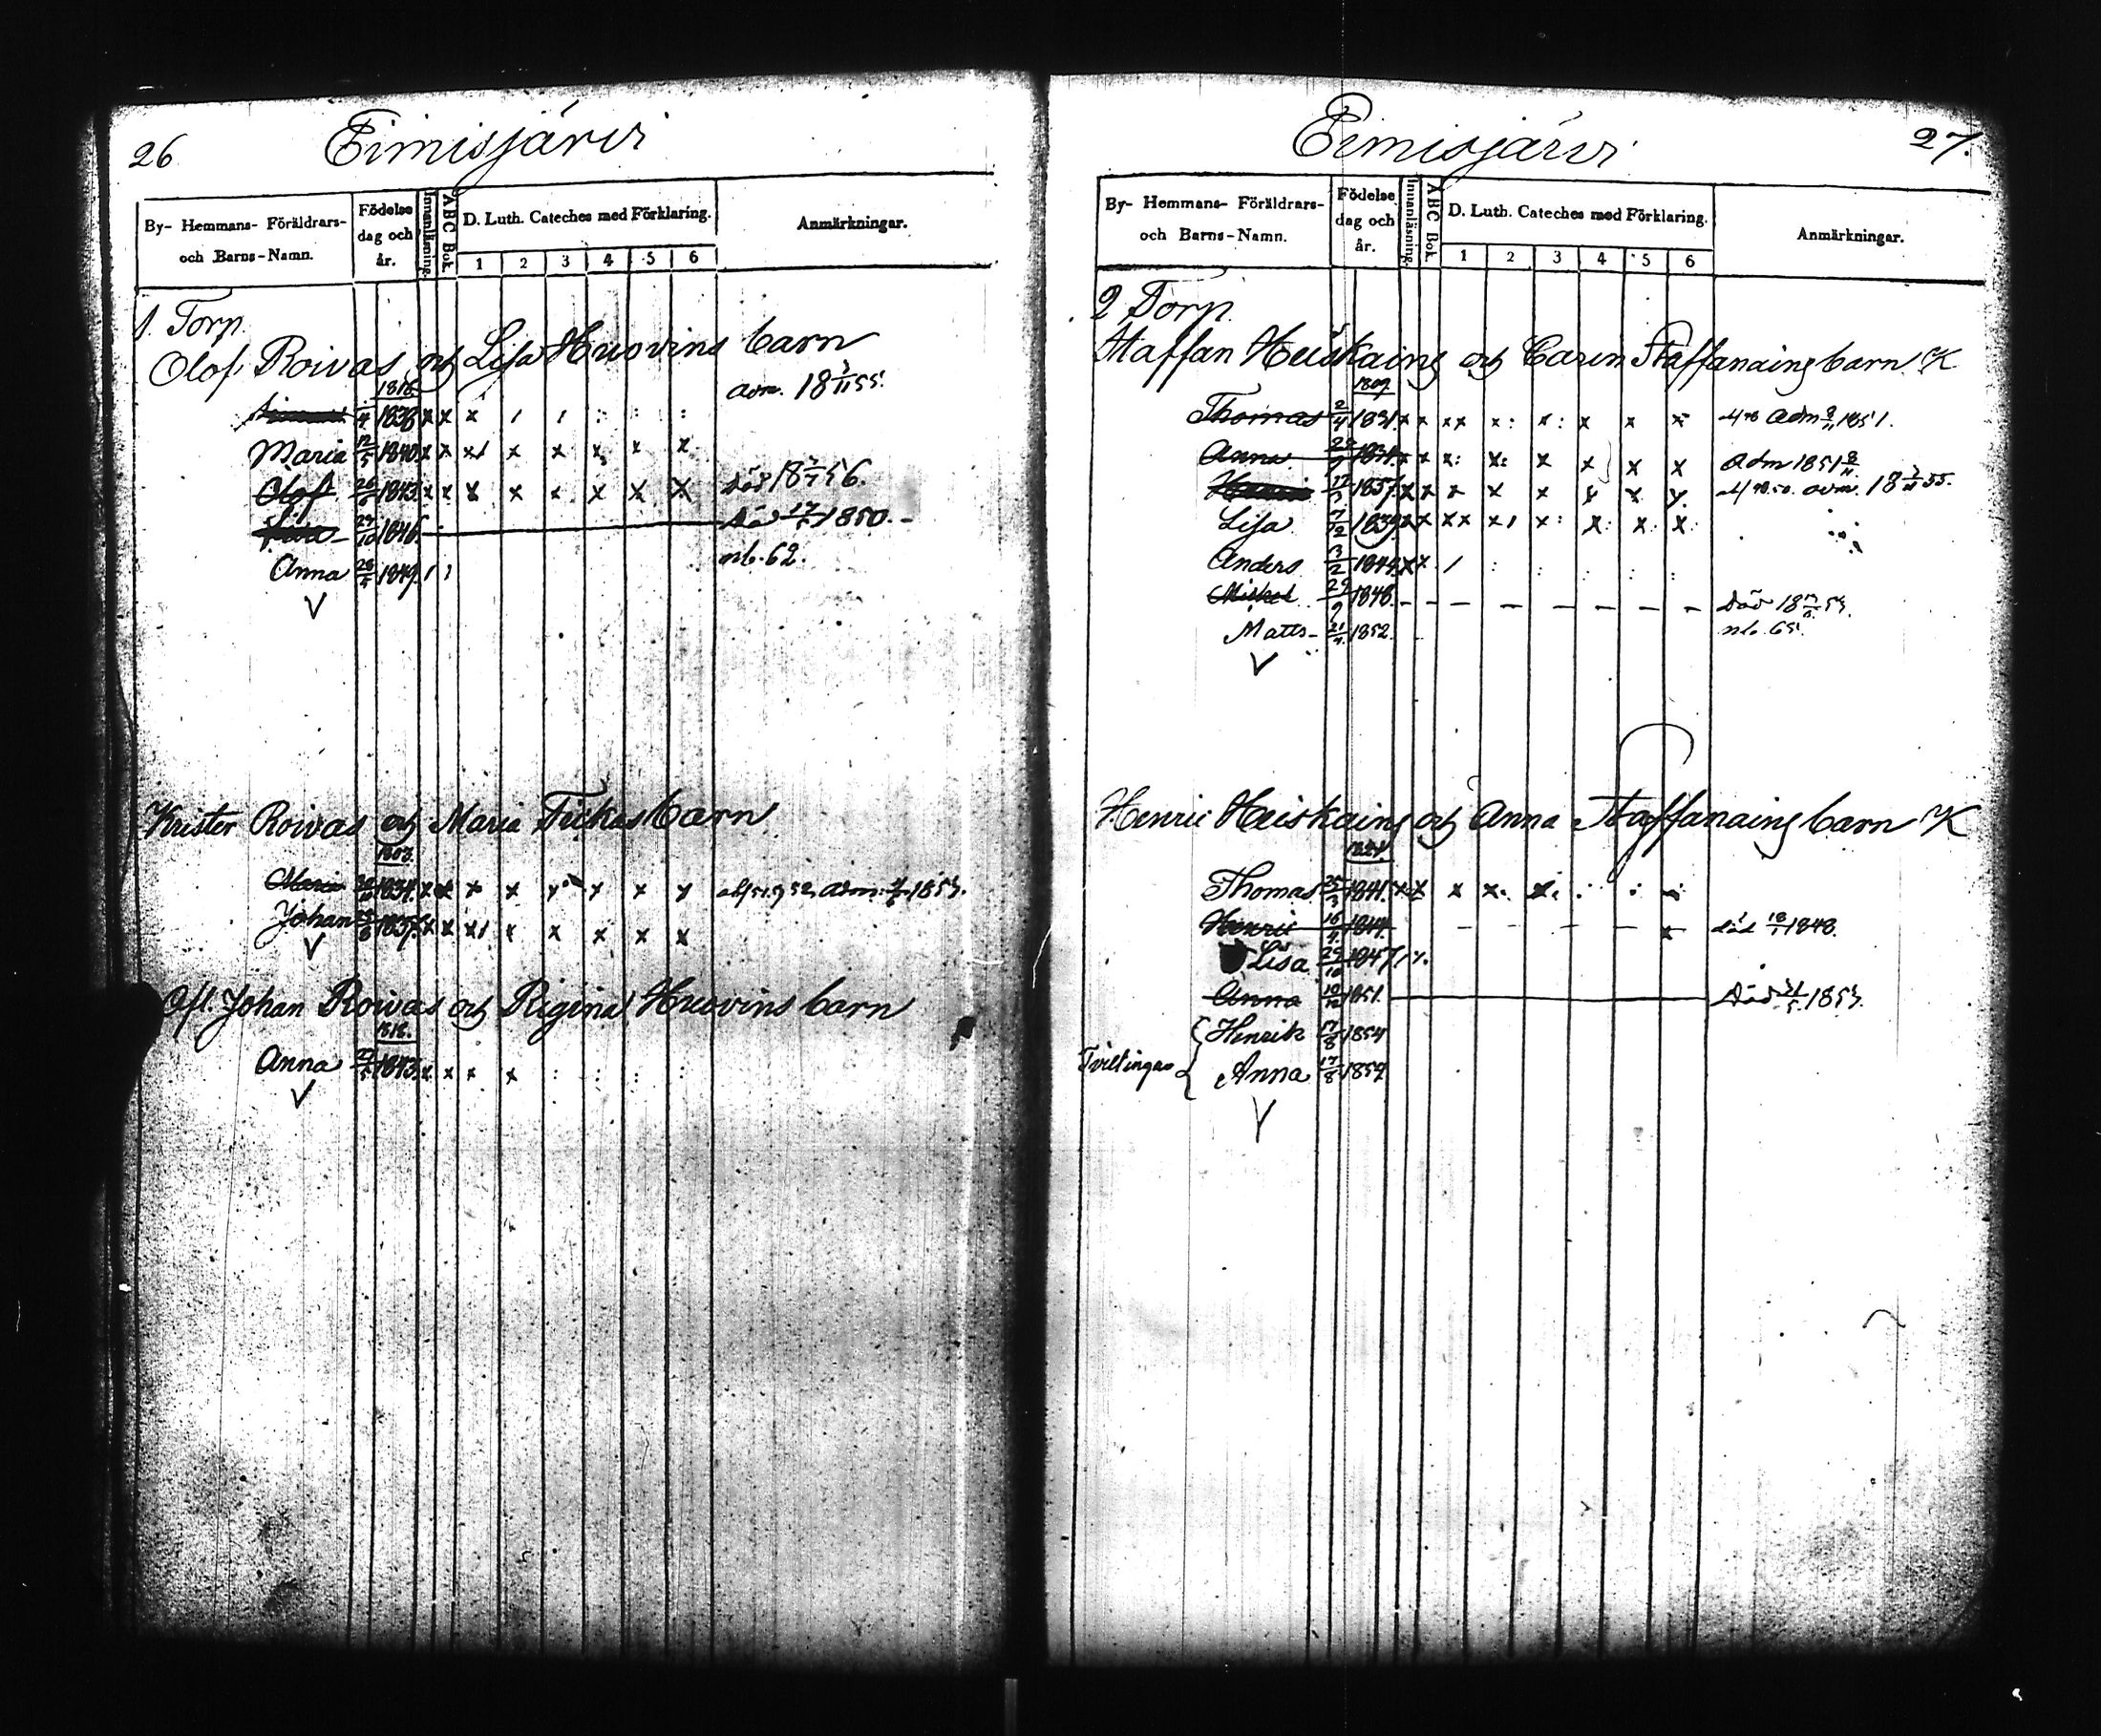 26
Eimisjärvi
By- Hemmans- Föräldrars- och Barns-Namn.
Födelse dag och år.
Innanläsning.
ABC Bok.
D. Luth. Cateches med Förklaring.
1 2 3 4 5 6
Anmärkningar.
1. Torp.
Olof Roivas och Lisa Huovins barn
1818
4 1838 x x x adm. 18 55.
Maria 12/5 1840 x x x x x x x x
Olof 26/6 1843 x x x x x x x x Död 18 56.
24/10 1846 Död 17 1850.
Anna 28 1849 nb. 62.
V
Krister Roivas och Maria Tickas barn
1803.
Maria 1834 x x x x x x x x adm. 1854.
Johan 1837 x x x x x x x x
V
Afl. Johan Roivas och Rigina Huovins barn
1818.
Anna 1843 x x x x : : : :
V
27.
Eimisjärvi
By- Hemmans- Föräldrars- och Barns-Namn.
Födelse dag och år.
Innanläsning.
ABC Bok.
D. Luth. Cateches med Förklaring.
1 2 3 4 5 6
Anmärkningar.
2 Torp.
Staffan Heiskaing och Carin Staffanaing barn K
1809.
Thomas 2/4 1831 x x xx x: x: x x x adm 1851.
Anna x x x: x: x x x x Adm 1851
1837 x x x x x x x x adm. 18 55.
Lisa 1839 x x xx x x: x: x: x:
Anders 3/2 1844 x x
Michel 29/9 1848. – – – – – – – – Död 18 54.
Matts 21 1852. nb. 65.
V
Henric Heiskaing och Anna Staffanaing barn K
Thomas 25/3 1841 x x x x: x:
Henric 16 1844 – – – – – – död 18 1848.
Lisa 29/10 1847
Anna 1851. Död 1854.
Henrik 17/8 1854
Tvillingar Anna 17/8 1854
V